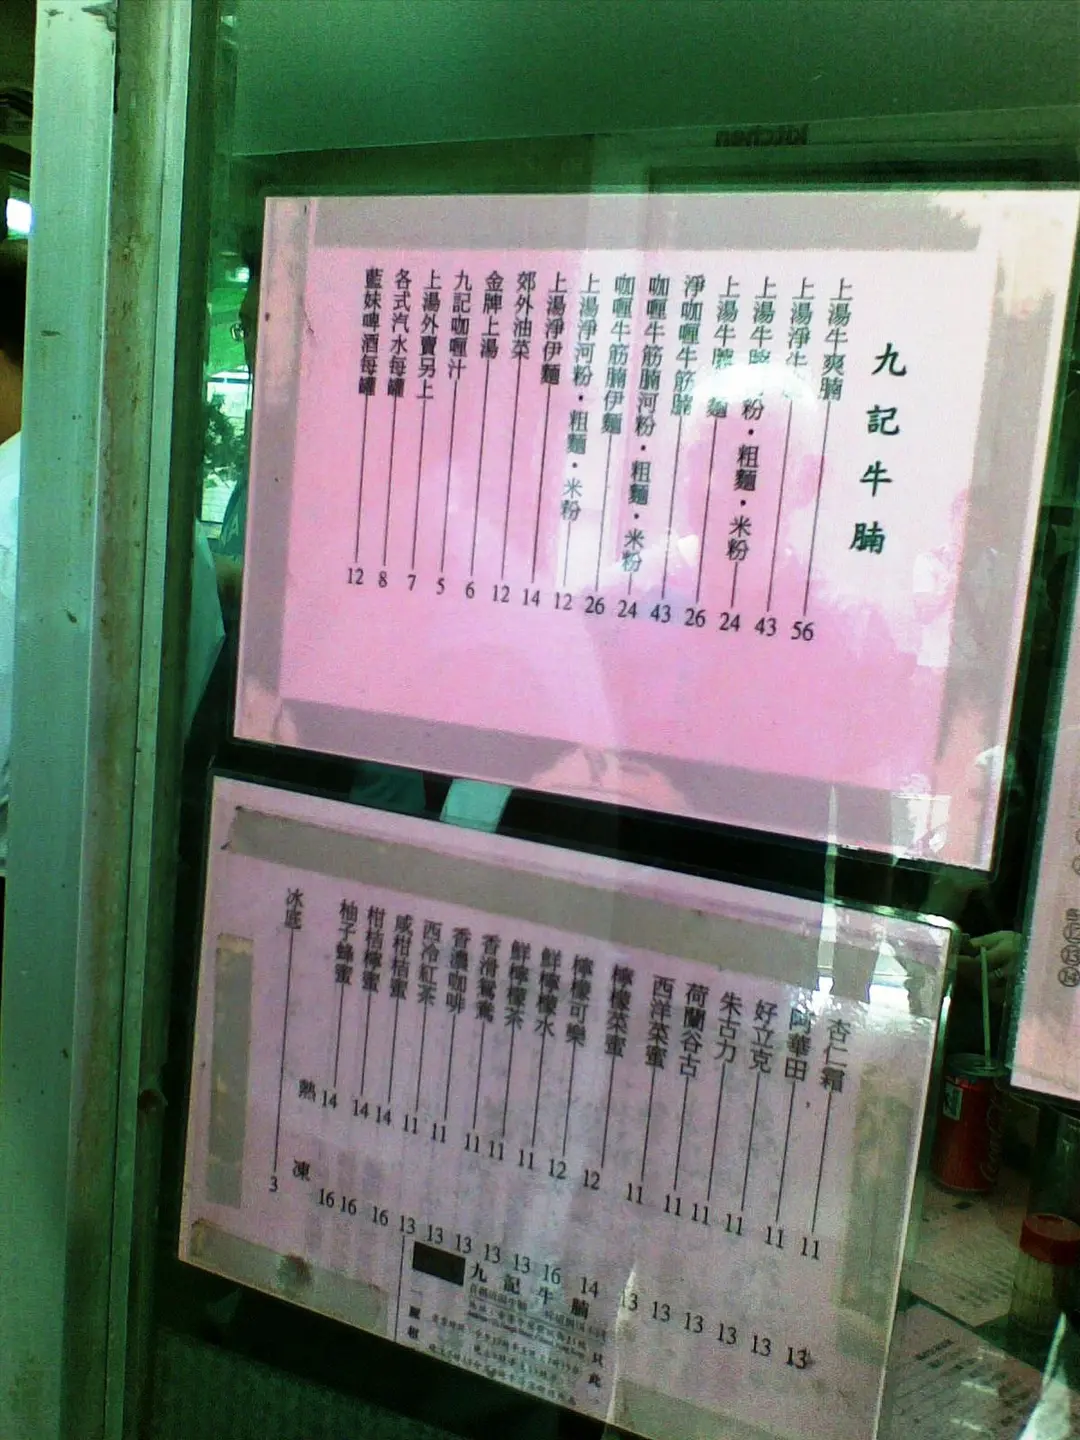 九記牛腩
上湯牛爽腩 56
上湯淨牛 43
上湯牛 粉・粗麵・米粉 24
上湯牛 麵 26
淨咖喱牛筋腩 43
咖喱牛筋腩河粉・粗麵・米粉 24
咖喱牛筋腩伊麵 26
上湯淨河粉・粗麵・米粉 12
上湯淨伊麵 14
郊外油菜 12
金牌上湯 6
九記咖喱汁 5
上湯外賣另上 7
各式汽水每罐 8
藍妹啤酒每罐 12
杏仁霜 11 13
阿華田 11 13
好立克 11 13
朱古力 11 13
荷蘭谷古 11 13
西洋菜蜜 11 13
檸檬菜蜜 12 14
檸檬可樂 12 16
鮮檸檬水 11 13
鮮檸檬茶 11 13
香滑鴛鴦 11 13
香濃咖啡 11 13
西冷紅茶 11 13
咸柑桔蜜 14 16
柑桔檸蜜 14 16
柚子蜂蜜 14 16
熱
凍
冰底 3
九記牛腩
只此一